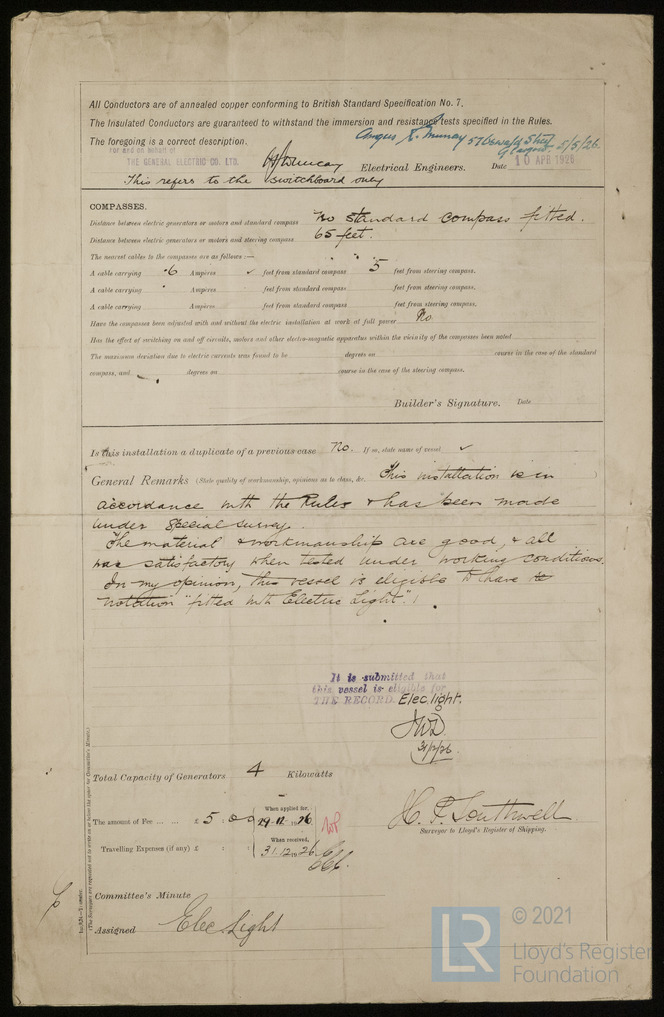 All Conductors are of annealed copper conforming to British Standard Specification No. 7.
The Insulated Conductors are guaranteed to withstand the immersion and resistance tests specified in the Rules.
The foregoing is a correct description.
Angus S. Murray 57 Oswald Street
Glasgow 5/5/26.
For and on behalf of
THE GENERAL ELECTRIC CO. LTD.
Electrical Engineers.
Date 10 APR 1926
This refers to the switchboard only
COMPASSES.
Distance between electric generators or motors and standard compass No standard compass fitted.
Distance between electric generators or motors and steering compass 65 feet.
The nearest cables to the compasses are as follows:—
A cable carrying .6 Ampères ✓ feet from standard compass 5 feet from steering compass.
A cable carrying Ampères feet from standard compass feet from steering compass.
A cable carrying Ampères feet from standard compass feet from steering compass.
Have the compasses been adjusted with and without the electric installation at work at full power No
Has the effect of switching on and off circuits, motors and other electro-magnetic apparatus within the vicinity of the compasses been noted
The maximum deviation due to electric currents was found to be degrees on course in the case of the standard
compass, and degrees on course in the case of the steering compass.
Builder's Signature. Date
Is this installation a duplicate of a previous case No. If so, state name of vessel ✓
General Remarks (State quality of workmanship, opinions as to class, &c. This installation is in
accordance with the Rules & has been made
under special survey.
The material & workmanship are good, & all
was satisfactory when tested under working conditions.
In my opinion, this vessel is eligible to have
notation "fitted with Electric Light".
It is submitted that
this vessel is eligible for
THE RECORD. Elec. light.
JWD.
31/12/26
Total Capacity of Generators 4 Kilowatts
The amount of Fee ... ... £ 5 : 0 : 0
When applied for,
29.12.1926
Travelling Expenses (if any) £ : :
When received,
31.12.1926
H. P. Southwell
Surveyor to Lloyd's Register of Shipping.
Committee's Minute
Assigned Elec Light
(The Surveyors are requested not to write on or below the space for Committee's Minute.)
© 2021
LR
Lloyd's Register
Foundation